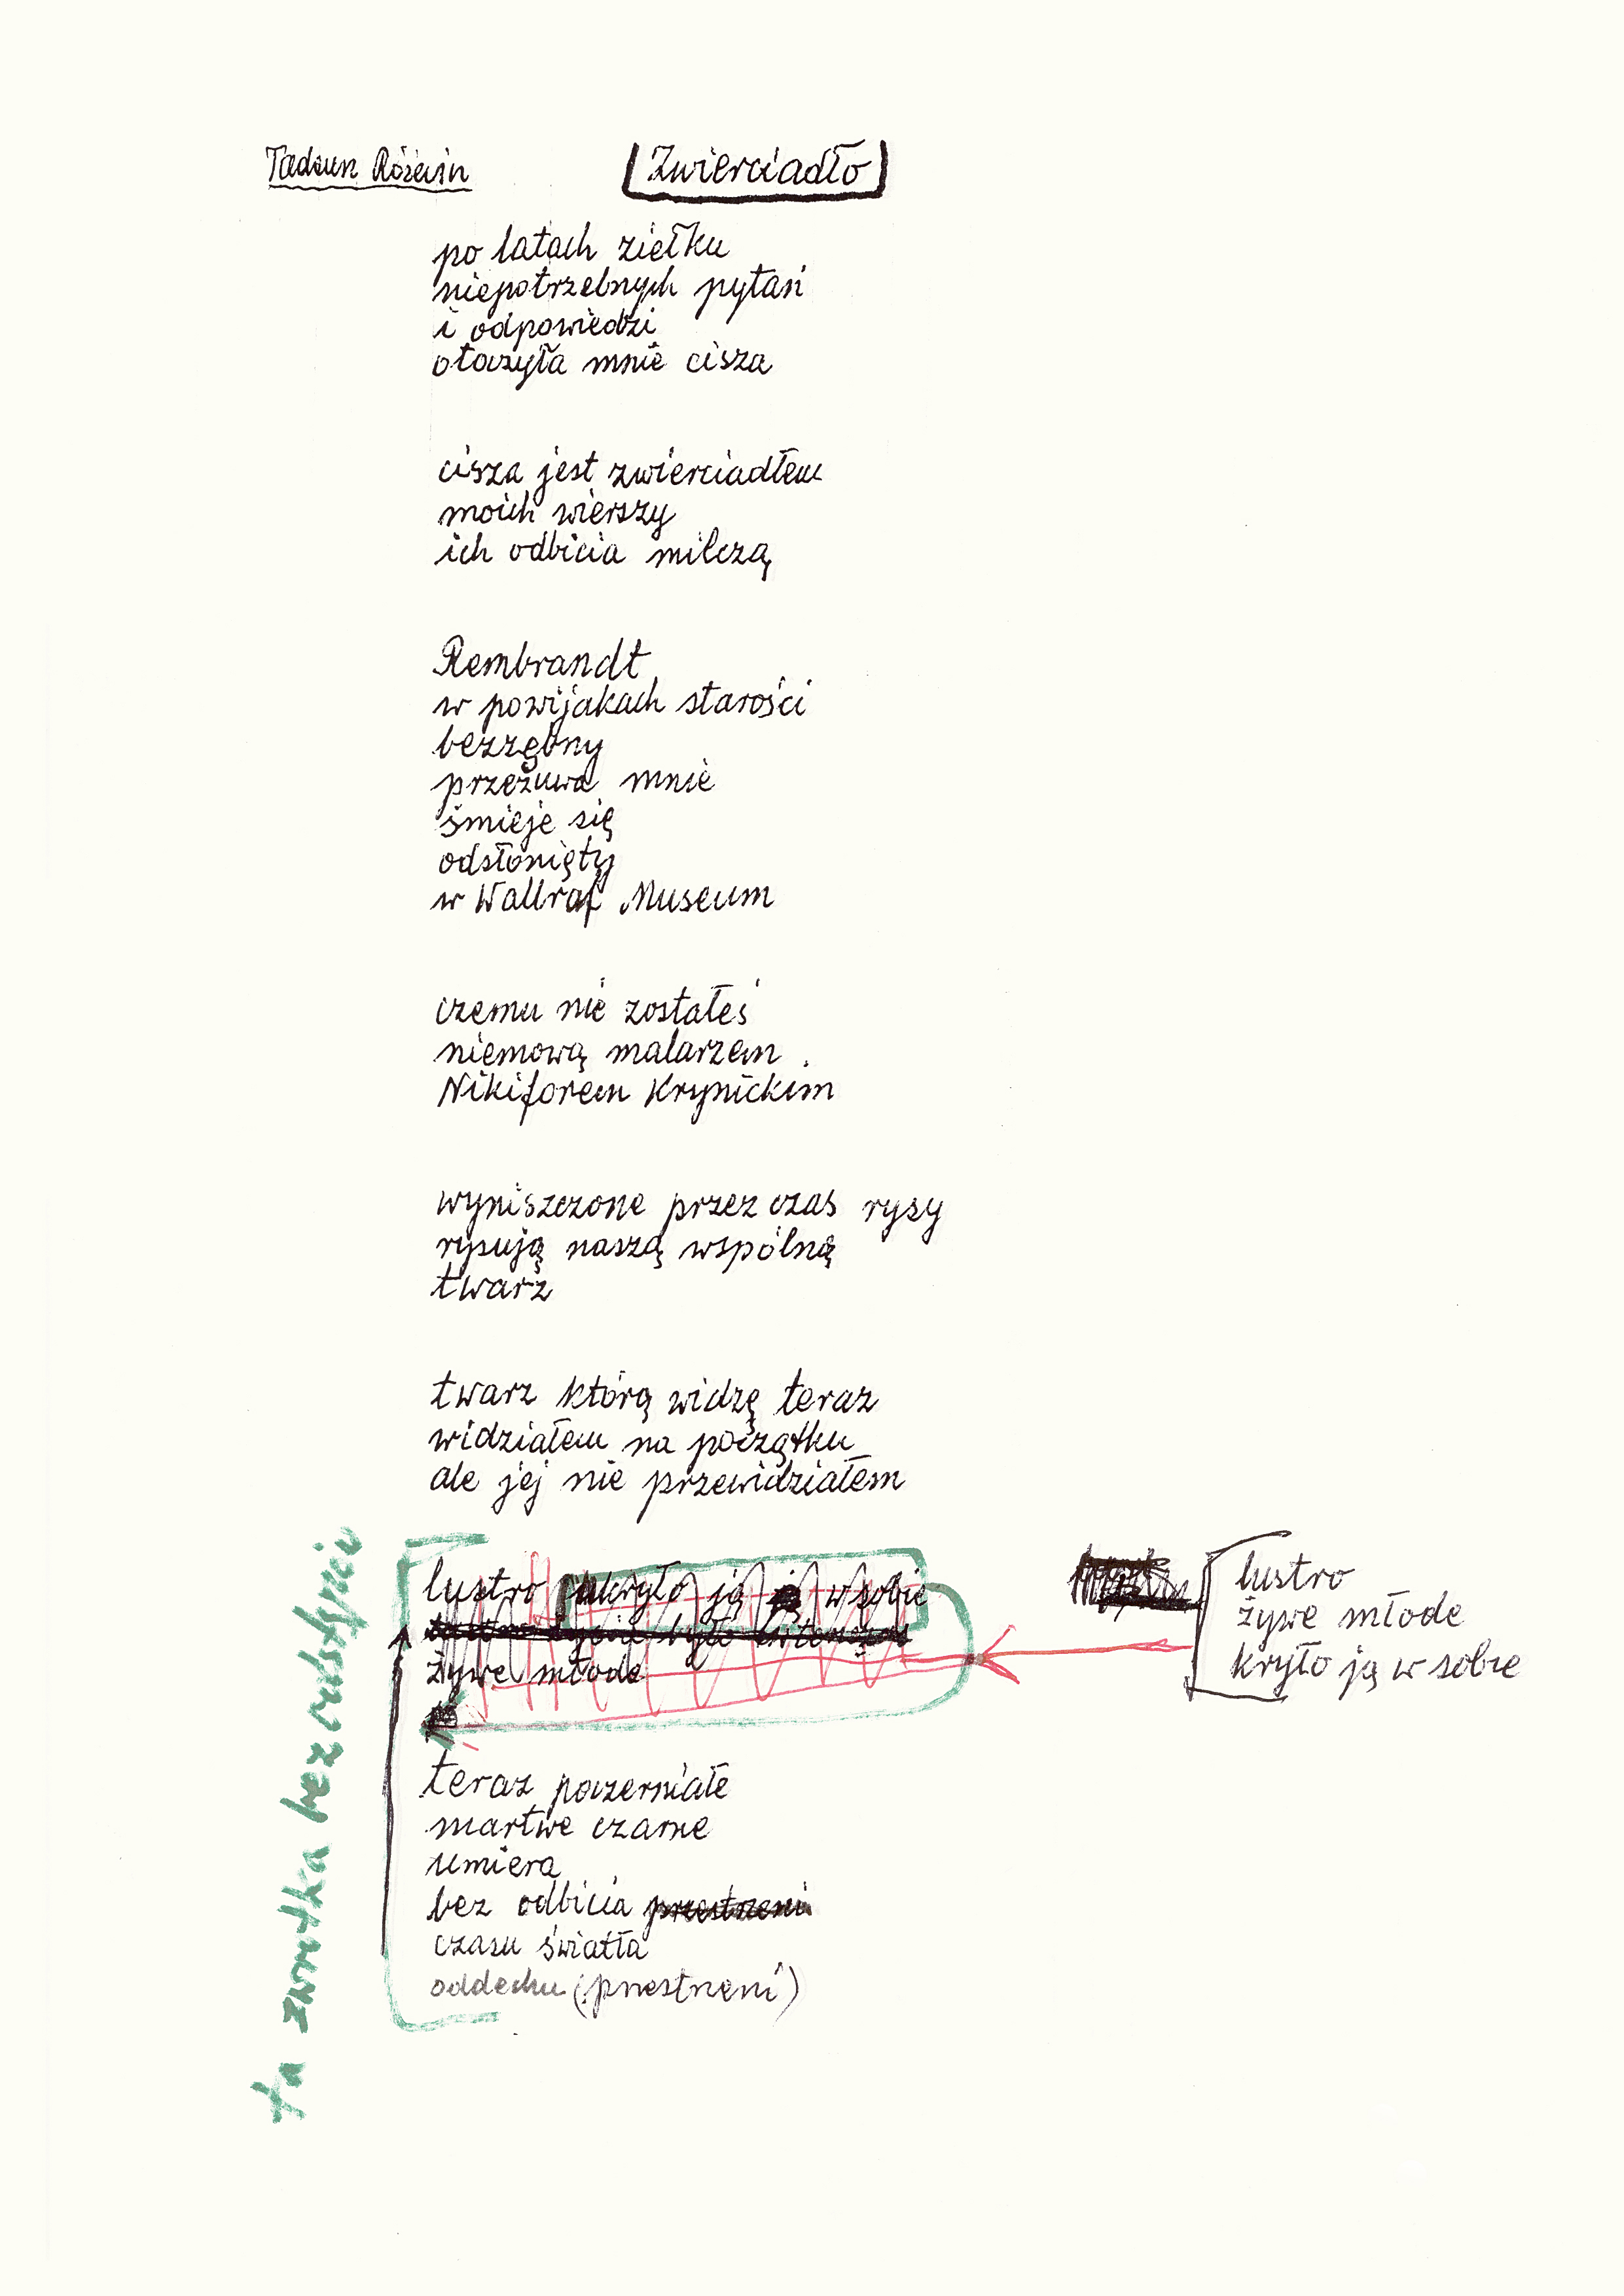 Tadeusz Różewicz
Zwierciadło
po latach ziełku
niepotrzebnych pytań
i odpowiedzi
otoczyła mnie cisza
cisza jest zwierciadłem
moich wierszy
ich odbicia milczą
Rembrandt
w powijakach starości
bezzębny
przeżuwa mnie
śmieje się
odsłonięty
w Wallraf Museum
czemu nie zostałeś
niemową malarzem
Nikiforem Krynickim
wyniszczone przez czas rysy
rysują naszą wspólną
twarz
twarz którą widzę teraz
widziałem na początku
ale jej nie przewidziałem
lustro ukryło ją w sobie
żywe młode
lustro
żywe młode
kryło ją w sobie
teraz poczerniałe
martwe czarne
umiera
bez odbicia przestrzeni
czasu światła
oddechu (przestrzeni)
ta zwrotka bez odstępów